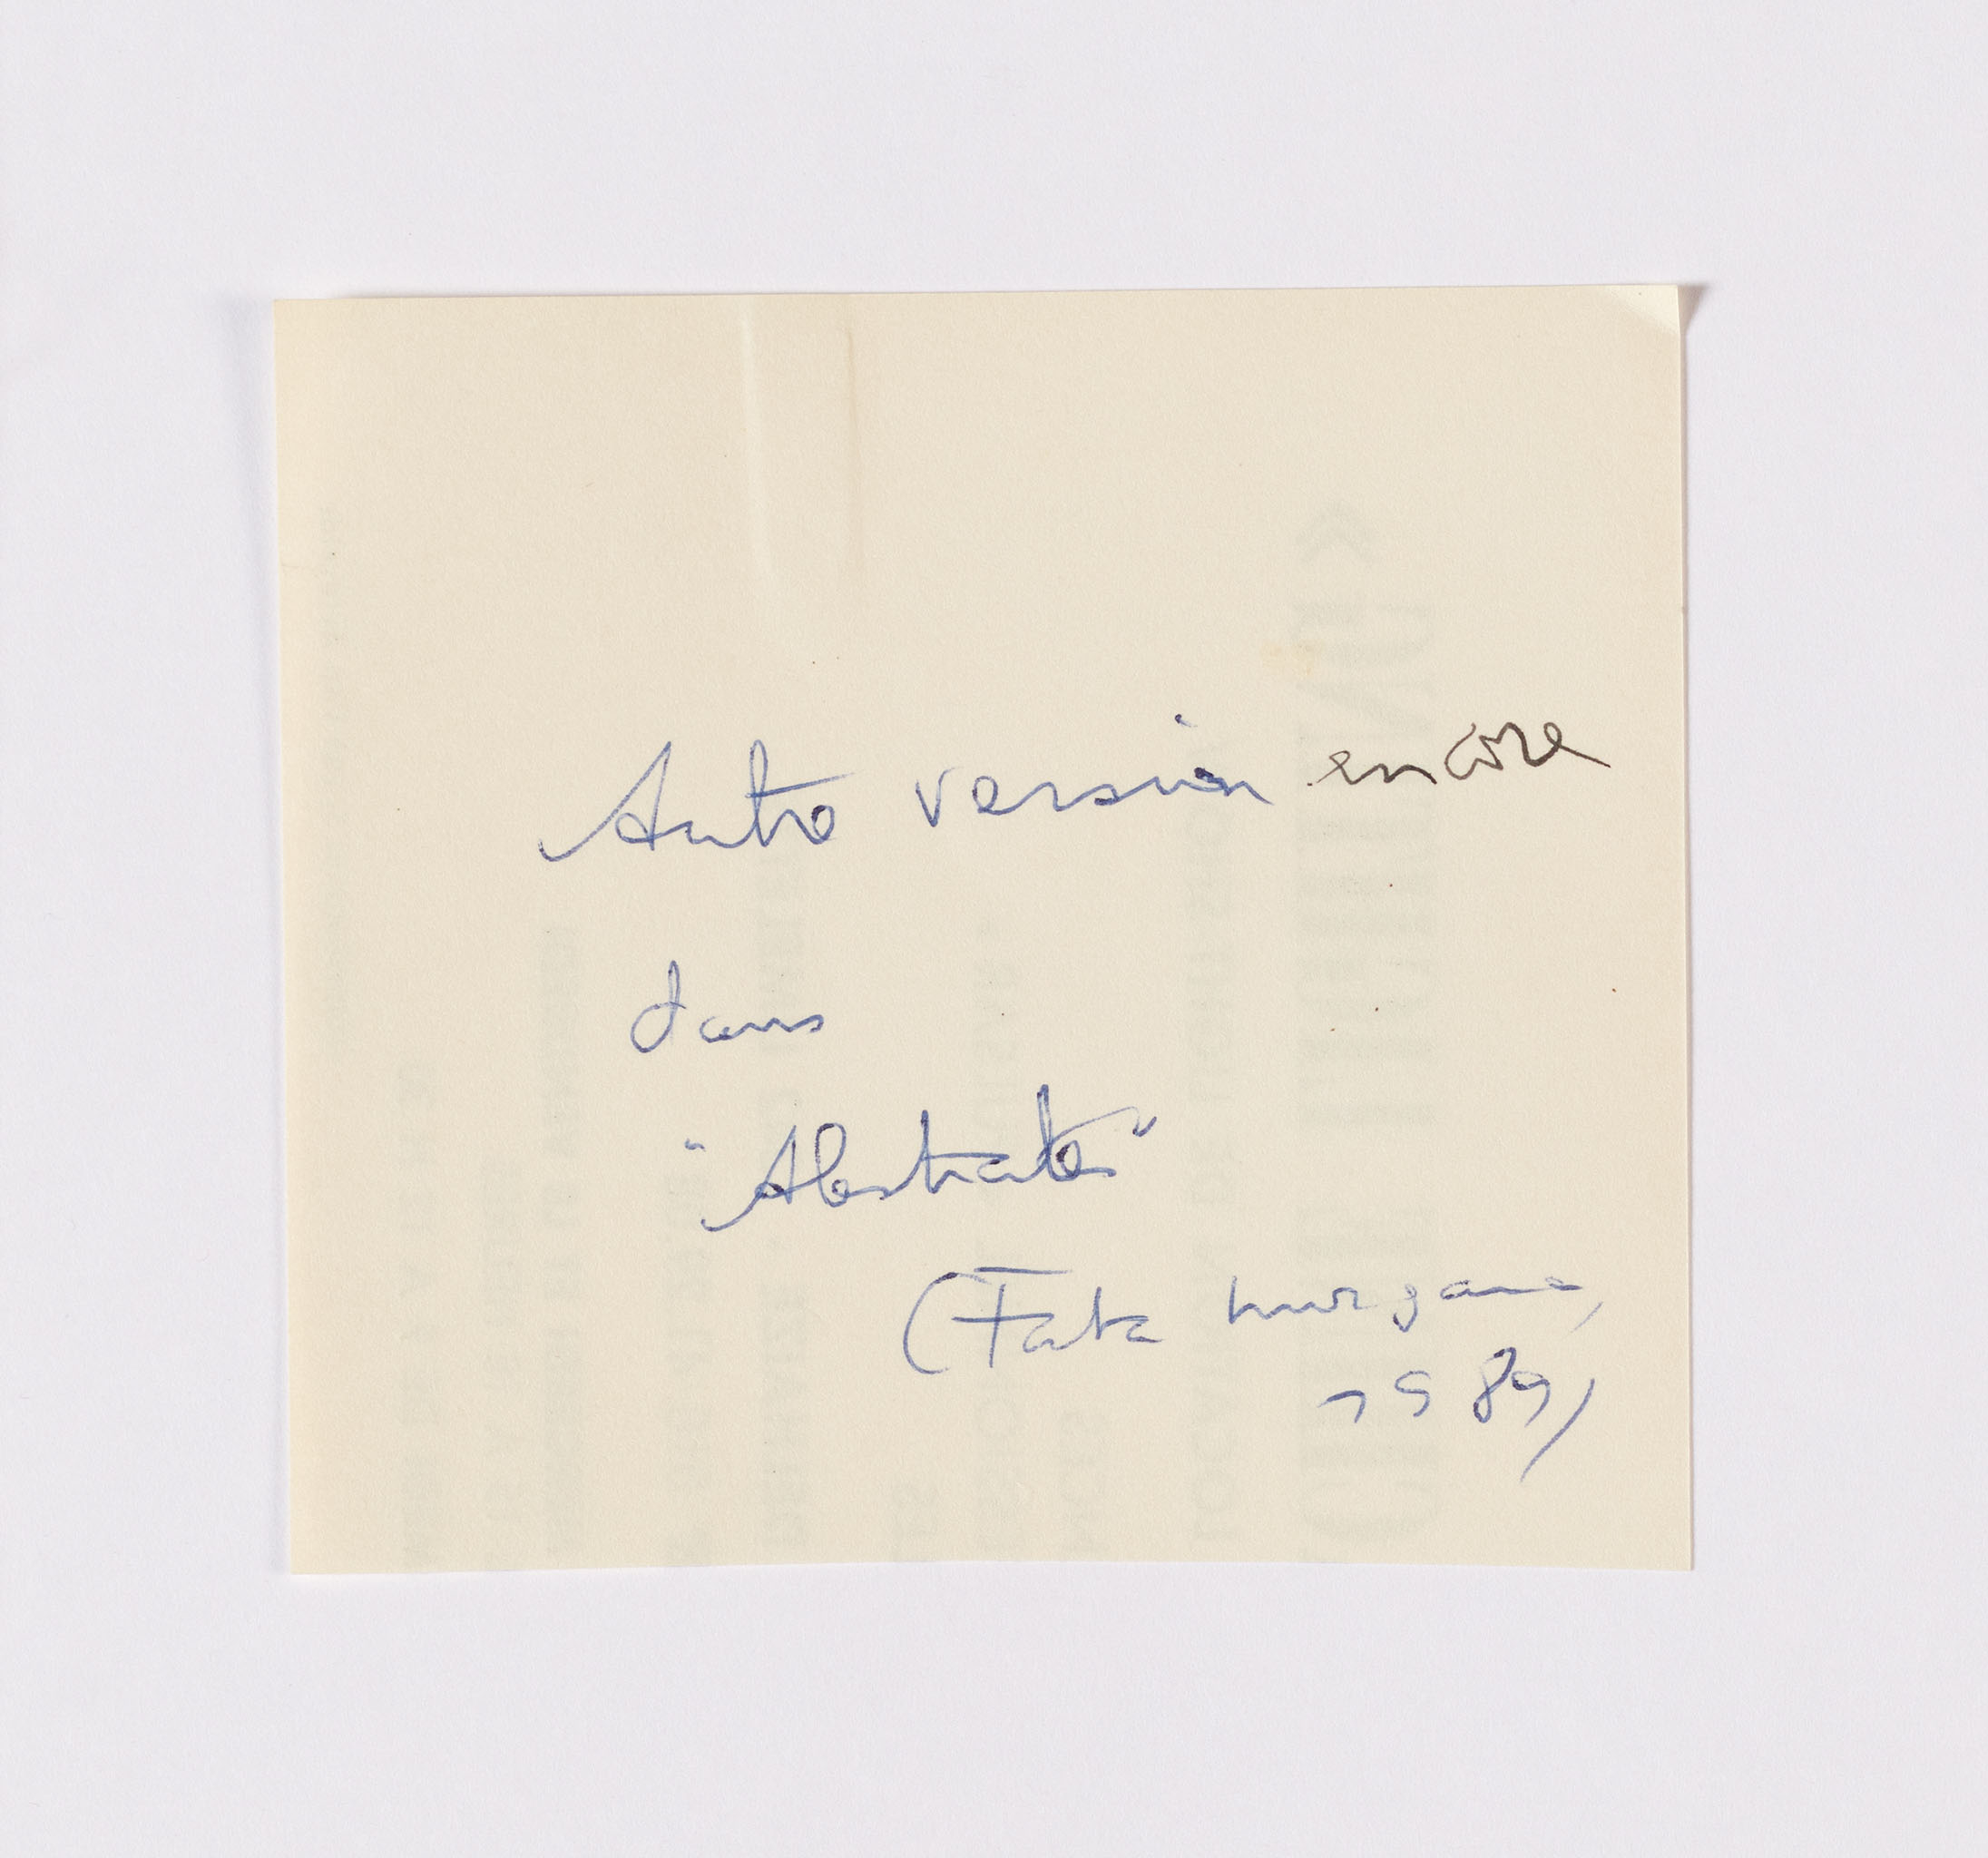 Autre version encore
dans
"Abstraites"
(Fata Morgana,
1989)